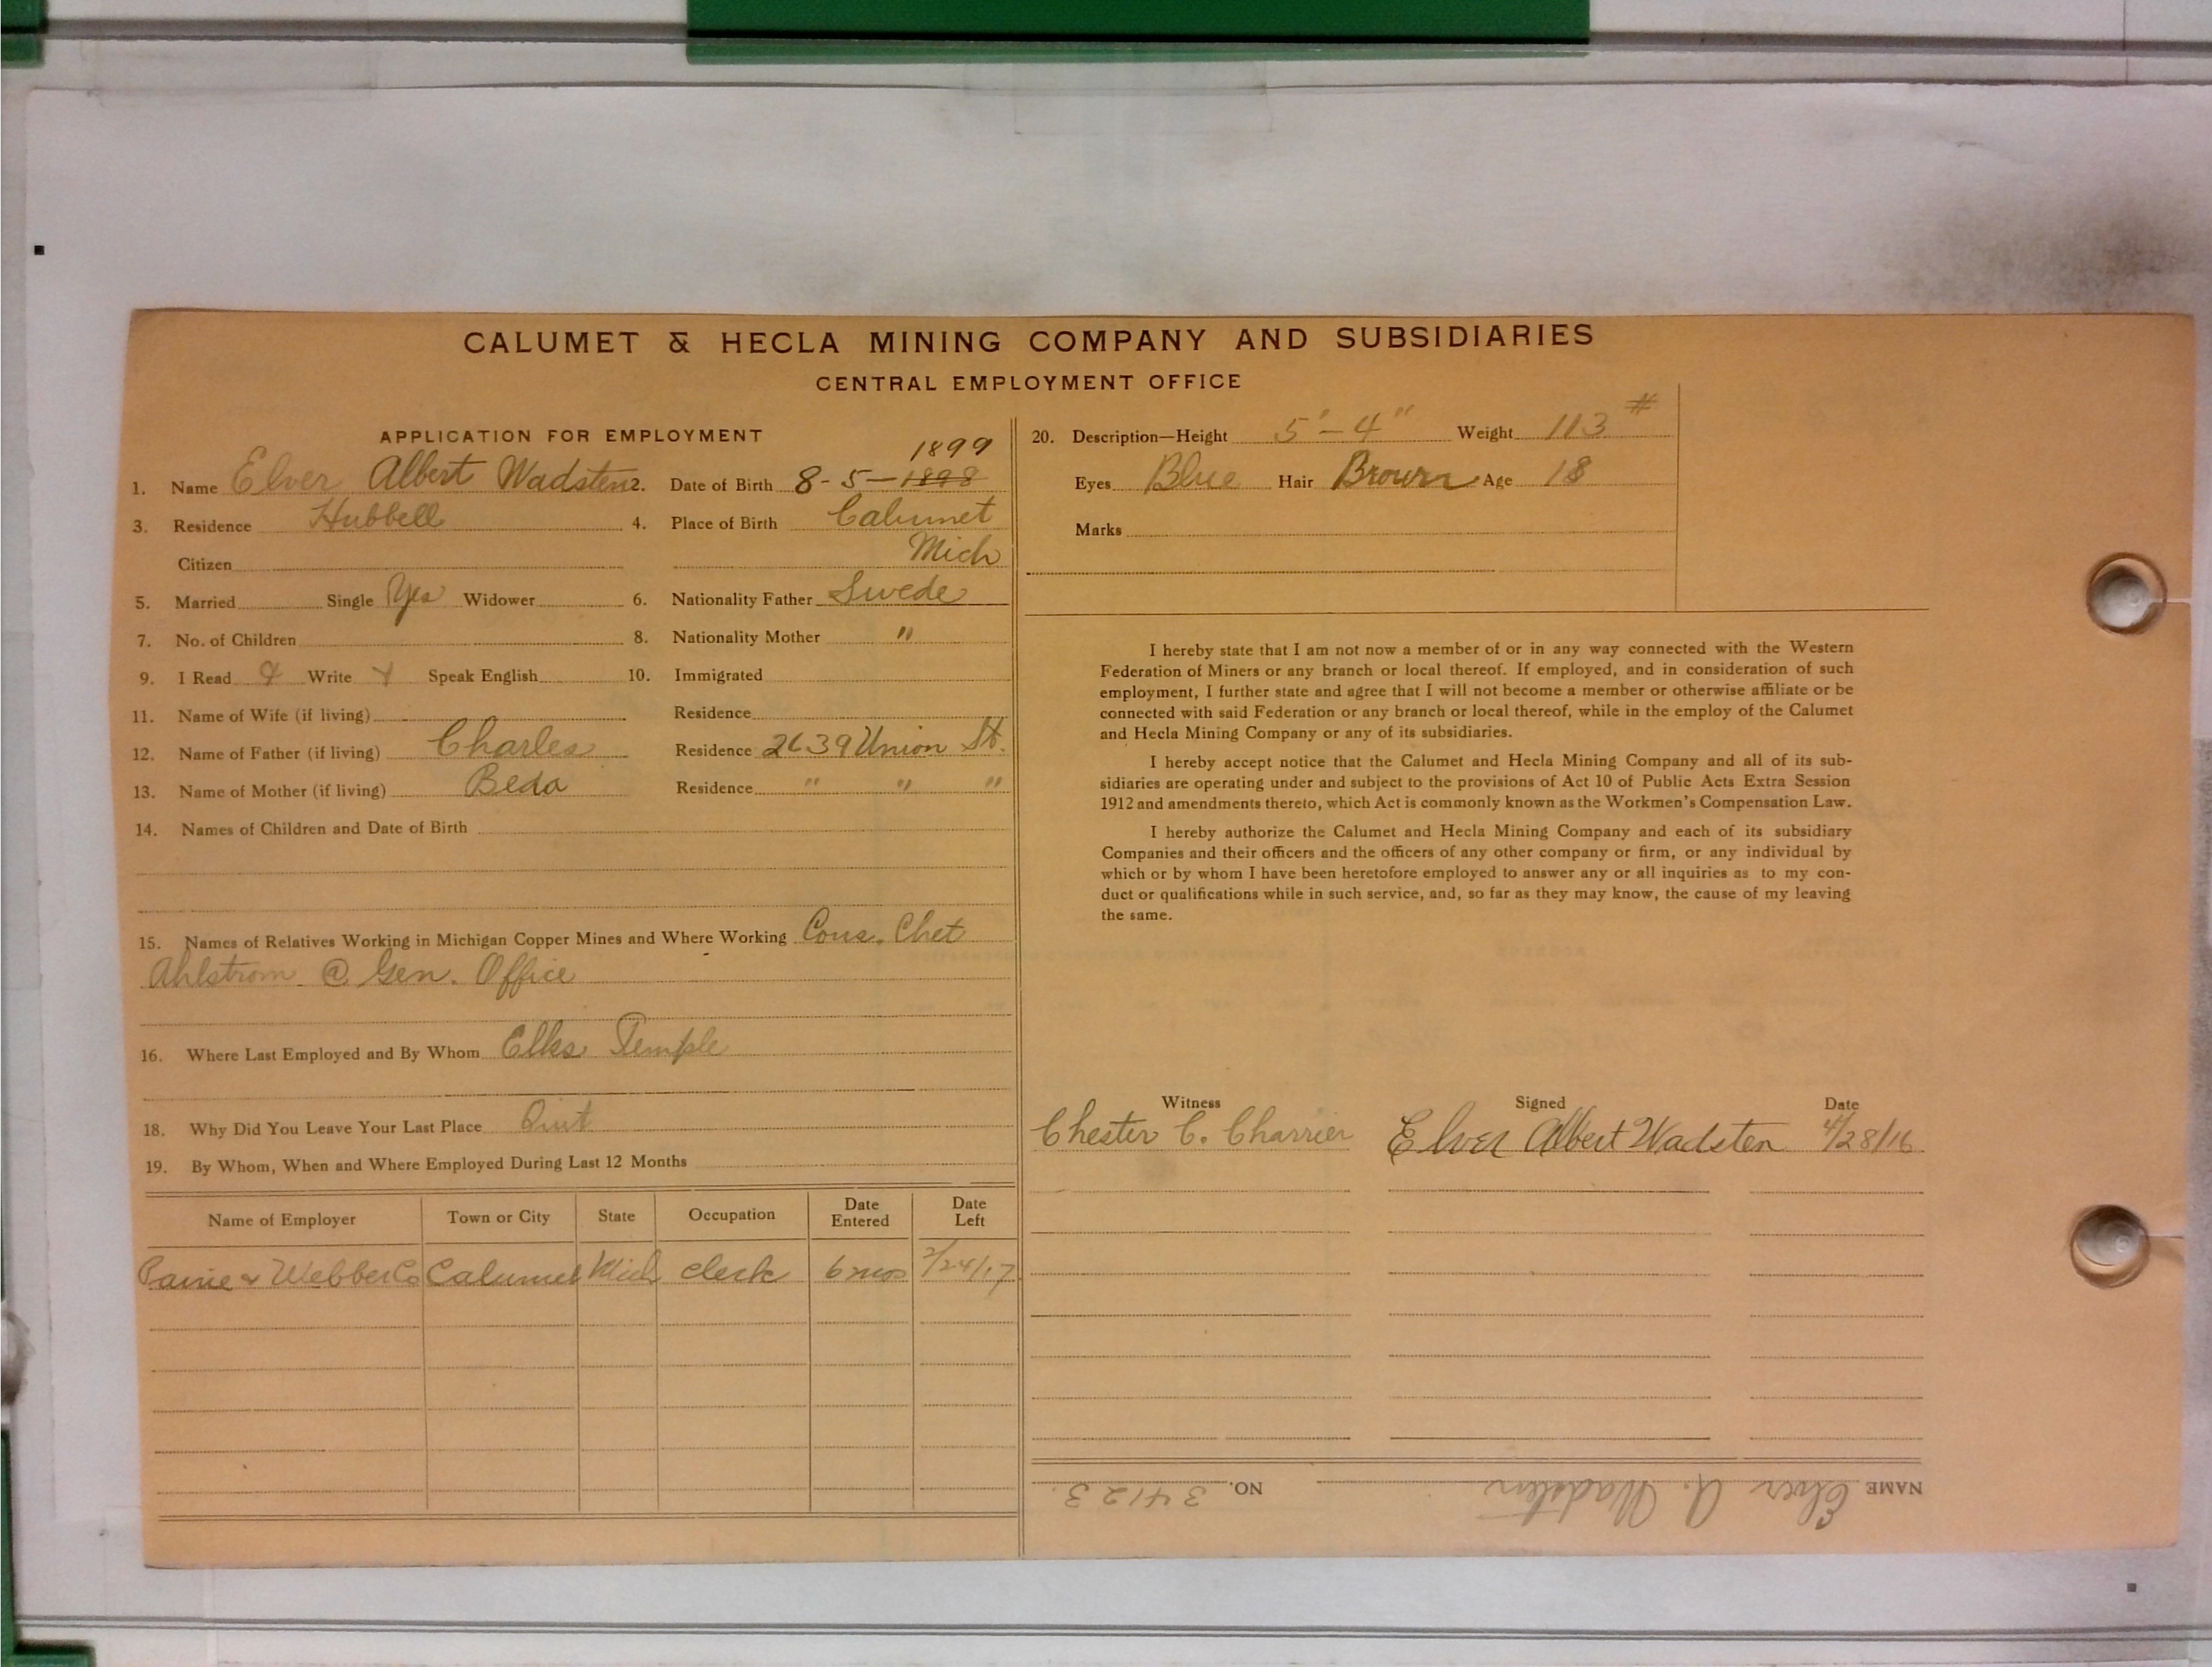 CALUMET & HECLA MINING COMPANY AND SUBSIDIARIES
CENTRAL EMPLOYMENT OFFICE
APPLICATION FOR EMPLOYMENT
1899
1. Name Elver Albert Wadsten 2. Date of Birth 8-5-1898
3. Residence Hubbell 4. Place of Birth Calumet
Citizen Mich
5. Married Single Yes Widower 6. Nationality Father Swede
7. No. of Children 8. Nationality Mother "
9. I Read Write Speak English 10. Immigrated
11. Name of Wife (if living) Residence
12. Name of Father (if living) Charles Residence 2639 Union St.
13. Name of Mother (if living) Beda Residence " " "
14. Names of Children and Date of Birth
15. Names of Relatives Working in Michigan Copper Mines and Where Working Cous. Chet
Ahlstrom @ Gen. Office
16. Where Last Employed and By Whom Elks Temple
18. Why Did You Leave Your Last Place Quit
19. By Whom, When and Where Employed During Last 12 Months
Name of Employer Town or City State Occupation Date Entered Date Left
Paine & Webber Co Calumet Mich clerk 6 mos 2/24/17
20. Description—Height 5'-4" Weight 113 #
Eyes Blue Hair Brown Age 18
Marks
I hereby state that I am not now a member of or in any way connected with the Western
Federation of Miners or any branch or local thereof. If employed, and in consideration of such
employment, I further state and agree that I will not become a member or otherwise affiliate or be
connected with said Federation or any branch or local thereof, while in the employ of the Calumet
and Hecla Mining Company or any of its subsidiaries.
I hereby accept notice that the Calumet and Hecla Mining Company and all of its sub-
sidiaries are operating under and subject to the provisions of Act 10 of Public Acts Extra Session
1912 and amendments thereto, which Act is commonly known as the Workmen's Compensation Law.
I hereby authorize the Calumet and Hecla Mining Company and each of its subsidiary
Companies and their officers and the officers of any other company or firm, or any individual by
which or by whom I have been heretofore employed to answer any or all inquiries as to my con-
duct or qualifications while in such service, and, so far as they may know, the cause of my leaving
the same.
Witness Signed Date
Chester C. Charrier Elver Albert Wadsten 4/28/16
NAME Elver A. Wadsten NO. 34123